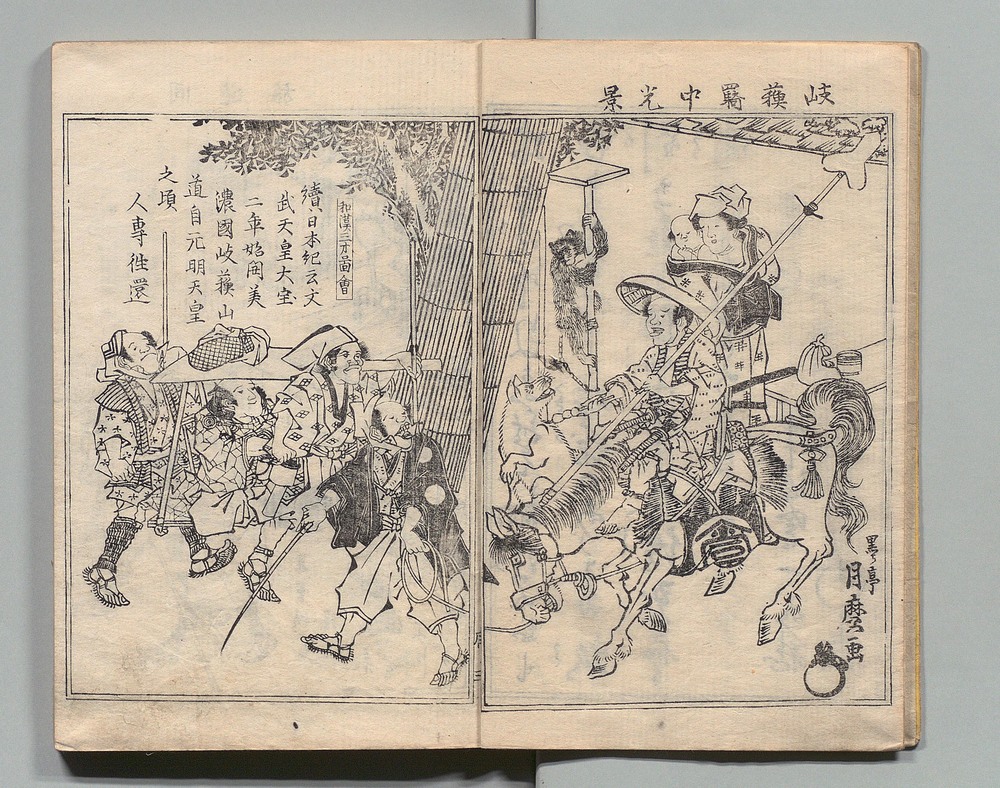 岐蘓羇中光景
和漢三才圖會
續日本紀云文
武天皇大宝
二年始開美
濃國岐蘓山
道自元明天皇
之頃
人専徃還
月麿画